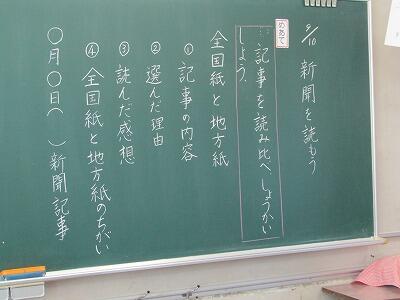 9/10 新聞を読もう
めあて
記事を読み比べ、しょうかい
しよう。
全国紙と地方紙
① 記事の内容
② 選んだ理由
③ 読んだ感想
④ 全国紙と地方紙のちがい
〇月〇日( )新聞記事